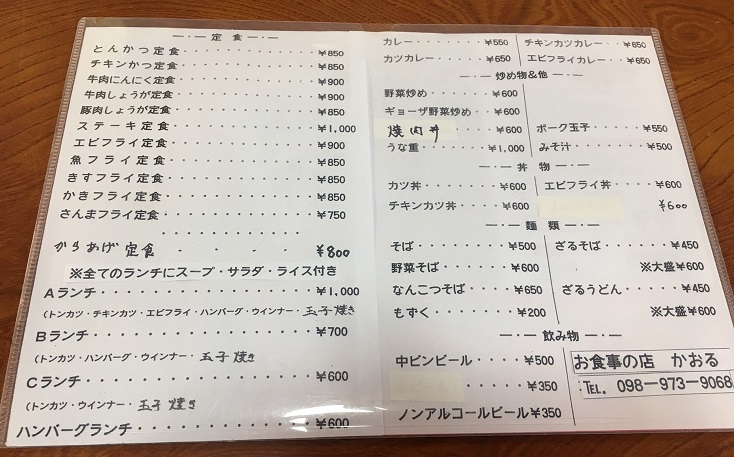 定食
とんかつ定食 ¥850
チキンかつ定食 ¥850
牛肉にんにく定食 ¥900
牛肉しょうが定食 ¥900
豚肉しょうが定食 ¥850
ステーキ定食 ¥1,000
エビフライ定食 ¥900
魚フライ定食 ¥850
きすフライ定食 ¥850
かきフライ定食 ¥850
さんまフライ定食 ¥750
からあげ定食 ¥800
※全てのランチにスープ・サラダ・ライス付き
Aランチ ¥1,000
(トンカツ・チキンカツ・エビフライ・ハンバーグ・ウインナー・玉子焼き
Bランチ ¥700
(トンカツ・ハンバーグ・ウインナー・玉子焼き
Cランチ ¥600
(トンカツ・ウインナー・玉子焼き
ハンバーグランチ ¥600
カレー ¥550
チキンカツカレー ¥650
カツカレー ¥650
エビフライカレー ¥650
炒め物&他
野菜炒め ¥600
ギョーザ野菜炒め ¥600
焼肉丼 ¥600
ポーク玉子 ¥550
うな重 ¥1,000
みそ汁 ¥500
丼物
カツ丼 ¥600
エビフライ丼 ¥600
チキンカツ丼 ¥600
¥600
麺類
そば ¥500
ざるそば ¥450
野菜そば ¥600
※大盛¥600
なんこつそば ¥650
ざるうどん ¥450
もずく ¥200
※大盛¥600
飲み物
中ビンビール ¥500
¥350
ノンアルコールビール ¥350
お食事の店 かおる
TEL. 098-973-9068